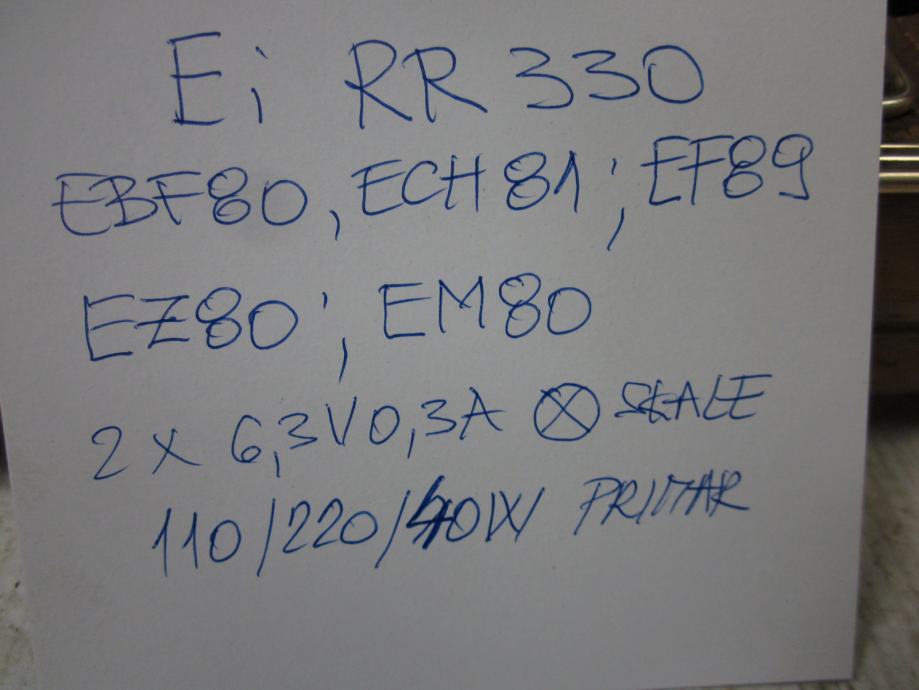 Ei RR 330
EBF80, ECH81; EF89
EZ80; EM80
2 x 6,3V 0,3A ⊗ SKALE
110/220/40W PRIMAR